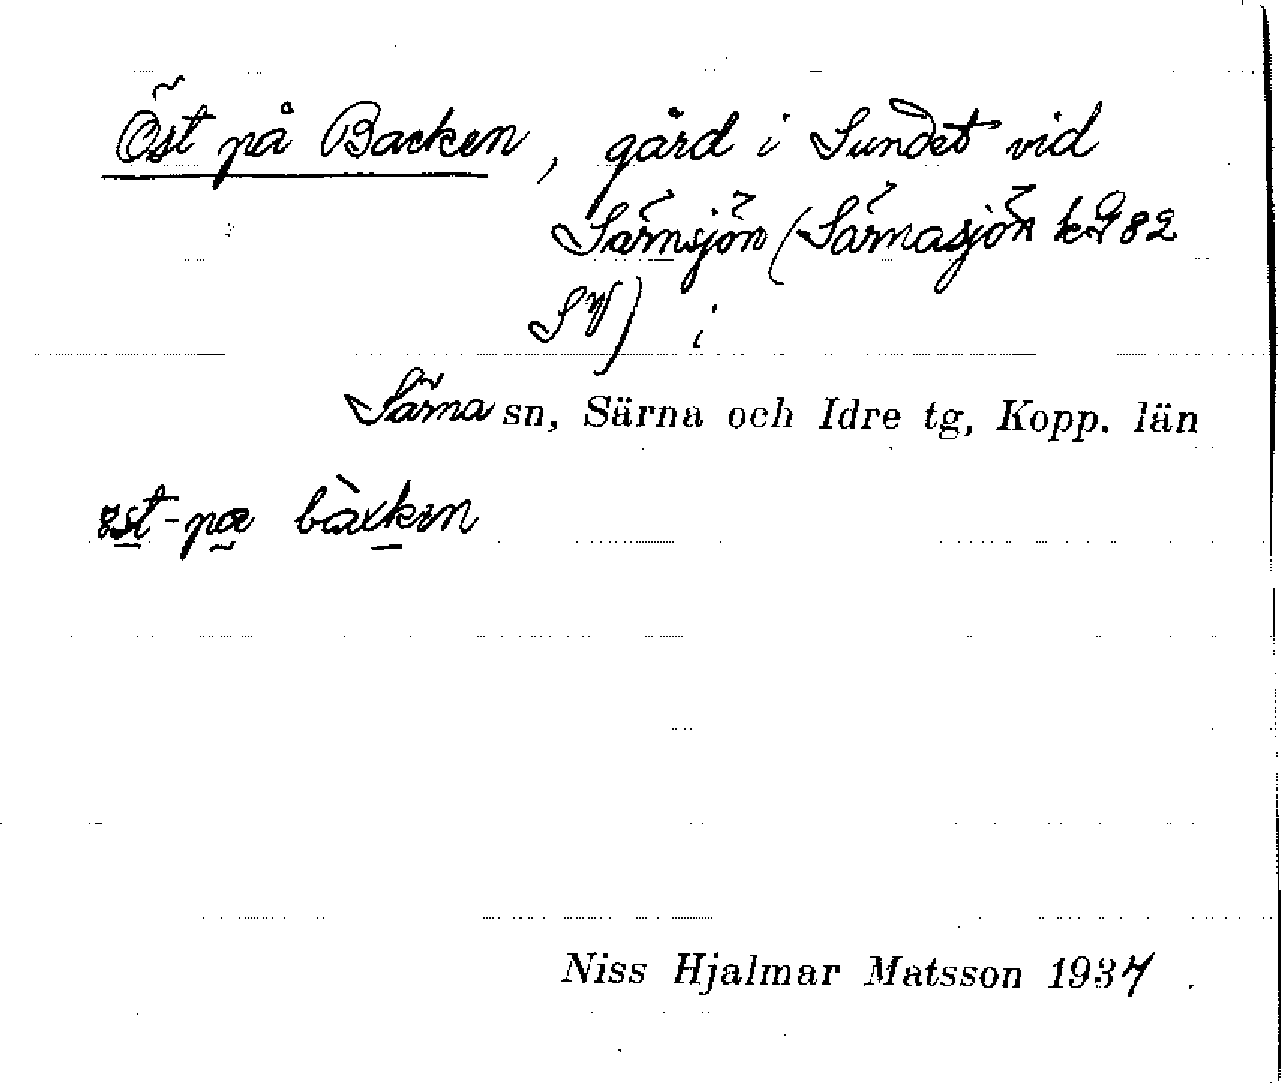 Öst på Backen, gård i Sundet vid
Särnsjön (Särnasjön kg 82
SV) i
Särna sn, Särna och Idre tg, Kopp. län
bàkken
Niss Hjalmar Matsson 1937.